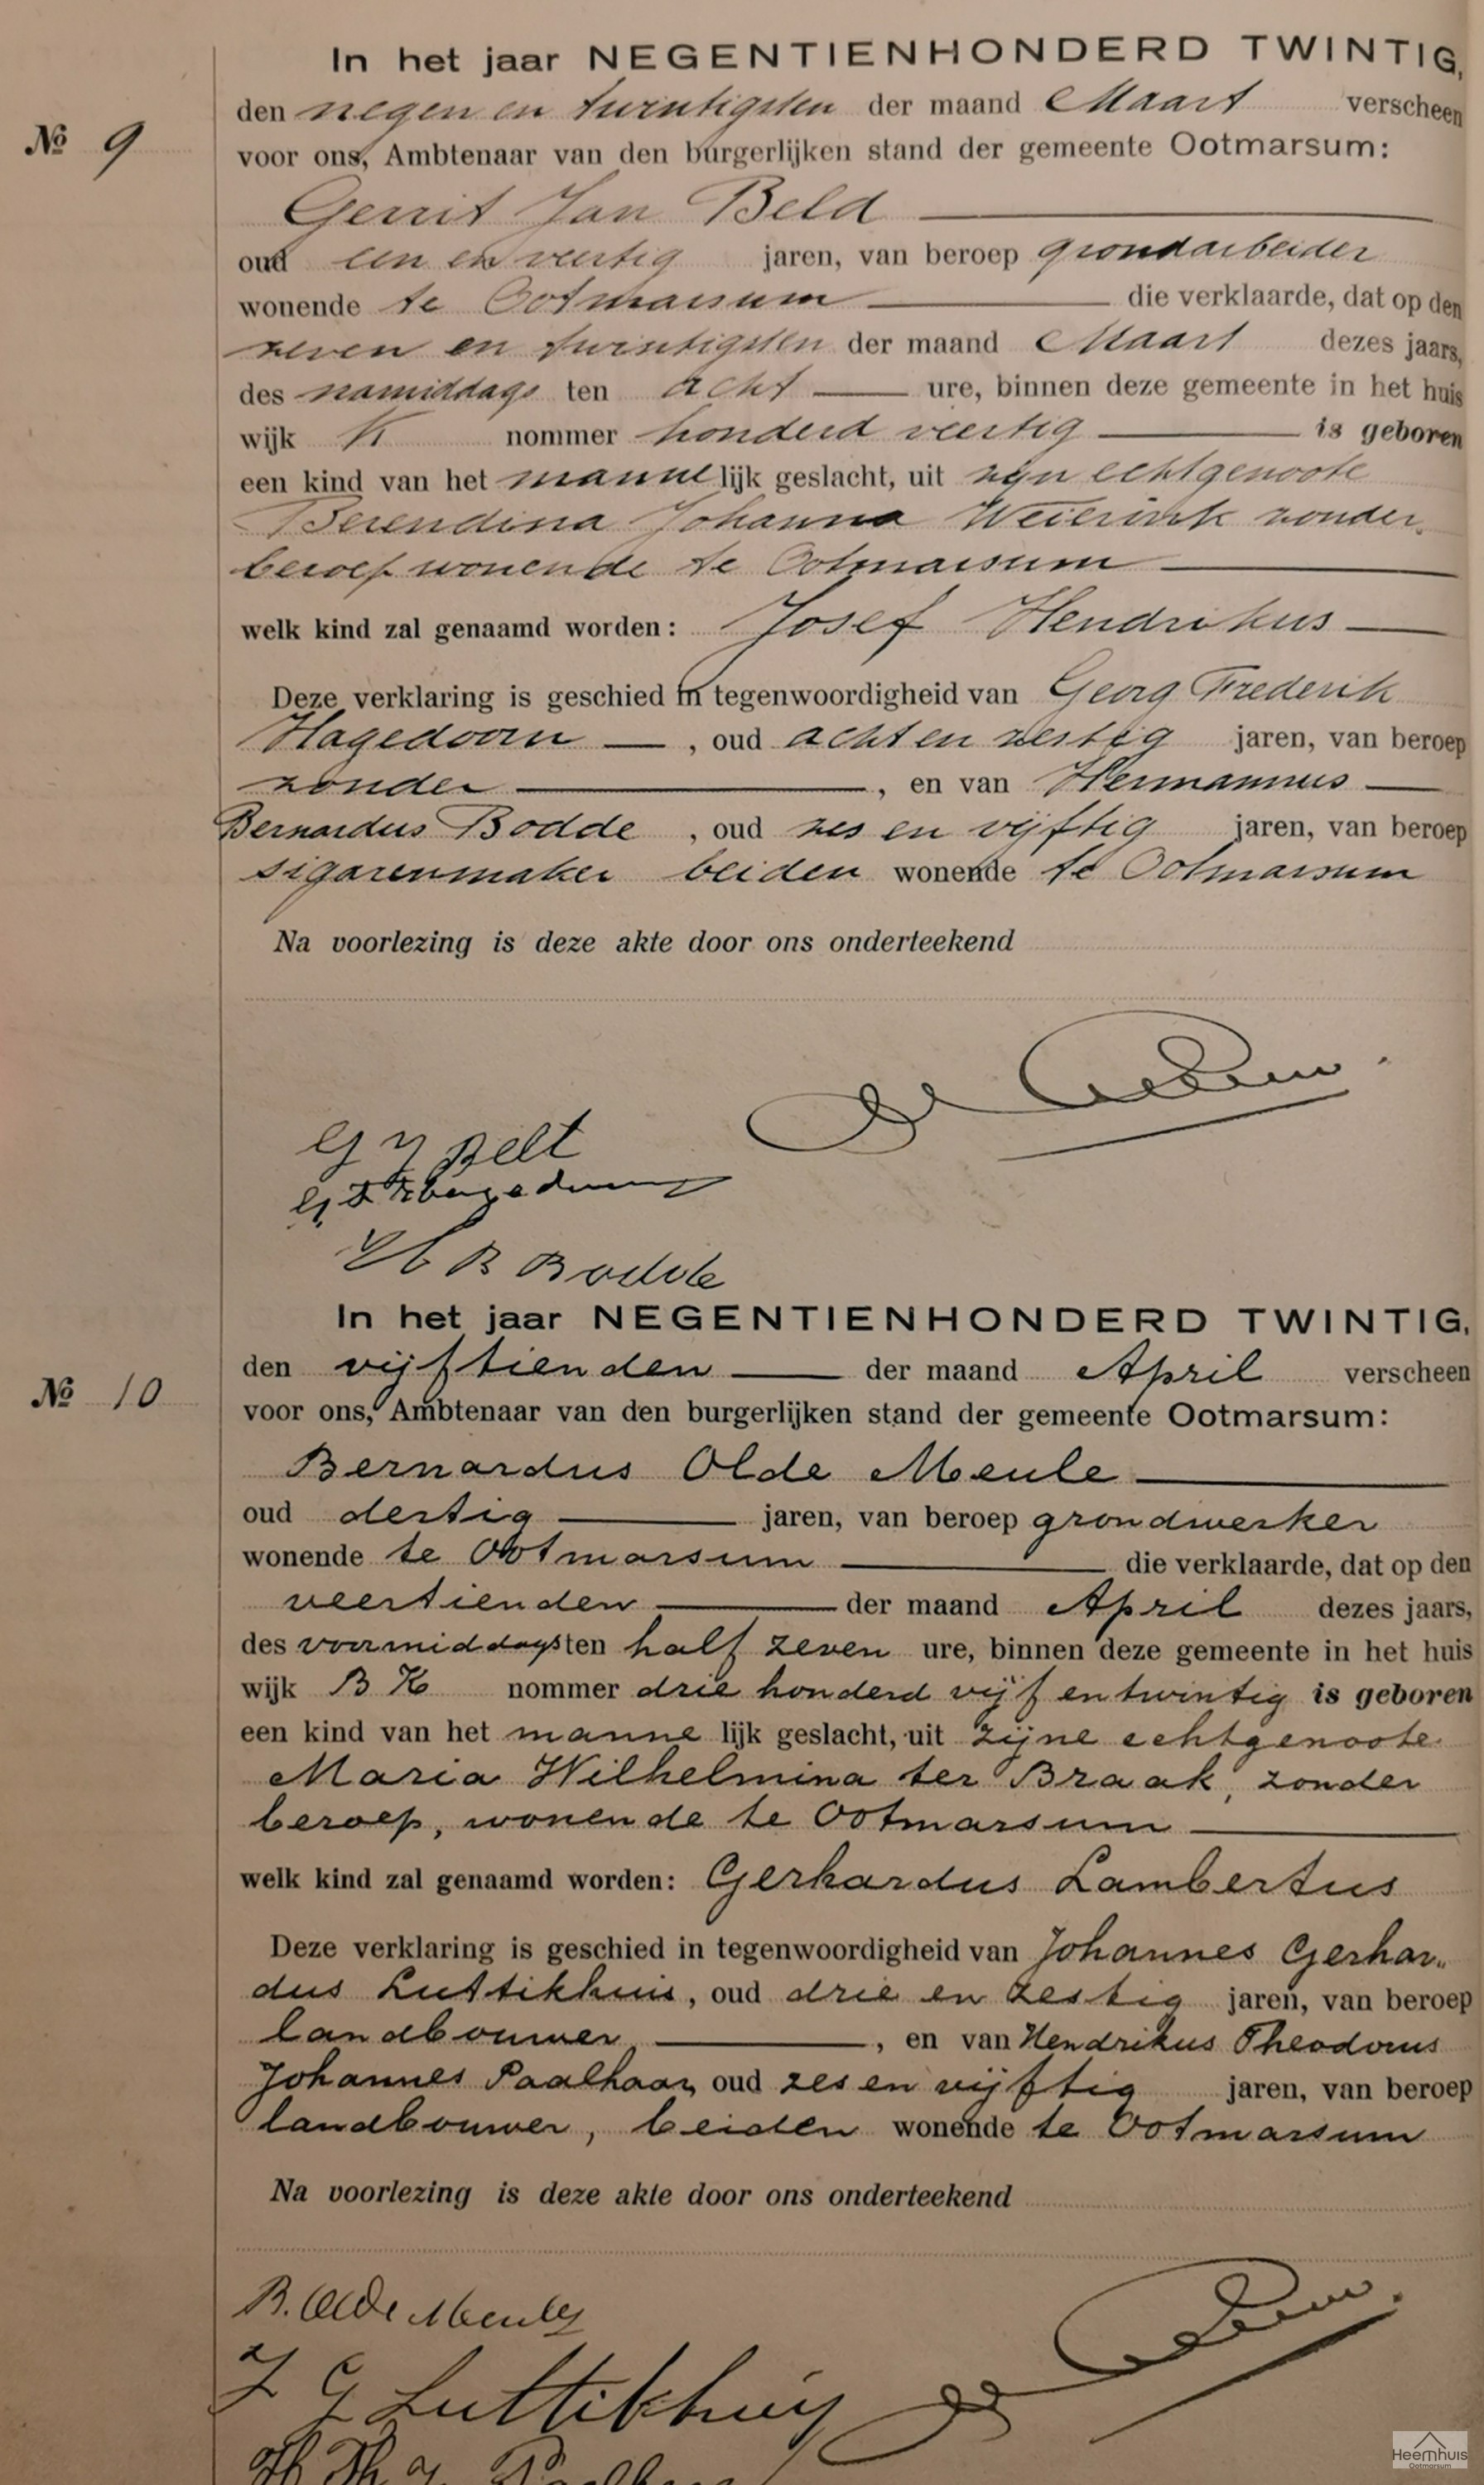 In het jaar NEGENTIENHONDERD TWINTIG,
den negen en twintigsten der maand Maart verscheen
№ 9
voor ons, Ambtenaar van den burgerlijken stand der gemeente Ootmarsum:
Gerrit Jan Beld
oud een en veertig jaren, van beroep grondarbeider
wonende te Ootmarsum die verklaarde, dat op den
zeven en twintigsten der maand Maart dezes jaars,
des namiddags ten acht ure, binnen deze gemeente in het huis
wijk K nommer honderd veertig is geboren
een kind van het mannelijk geslacht, uit zijn echtgenoote
Berendina Johanna Weierink zonder
beroep wonende te Ootmarsum
welk kind zal genaamd worden: Josef Hendrikus
Deze verklaring is geschied in tegenwoordigheid van Georg Frederik
Hagedoorn, oud acht en zestig jaren, van beroep
zonder, en van Hermannus
Bernardus Bodde, oud zes en vijftig jaren, van beroep
sigarenmaker beiden wonende te Ootmarsum
Na voorlezing is deze akte door ons onderteekend
G J Belt
H B Bodde
In het jaar NEGENTIENHONDERD TWINTIG,
den vijftienden der maand April verscheen
№ 10
voor ons, Ambtenaar van den burgerlijken stand der gemeente Ootmarsum:
Bernardus Olde Meule
oud dertig jaren, van beroep grondwerker
wonende te Ootmarsum die verklaarde, dat op den
veertienden der maand April dezes jaars,
des voormiddags ten half zeven ure, binnen deze gemeente in het huis
wijk B K nommer drie honderd vijf en twintig is geboren
een kind van het mannelijk geslacht, uit zijne echtgenoote
Maria Wilhelmina ter Braak, zonder
beroep, wonende te Ootmarsum
welk kind zal genaamd worden: Gerhardus Lambertus
Deze verklaring is geschied in tegenwoordigheid van Johannes Gerhar-
dus Luttikhuis, oud drie en zestig jaren, van beroep
landbouwer, en van Hendrikus Theodorus
Johannes Paalhaar, oud zes en vijftig jaren, van beroep
landbouwer, beiden wonende te Ootmarsum
Na voorlezing is deze akte door ons onderteekend
B. Olde Meule
J G Luttikhuis
Heemhuis
Ootmarsum